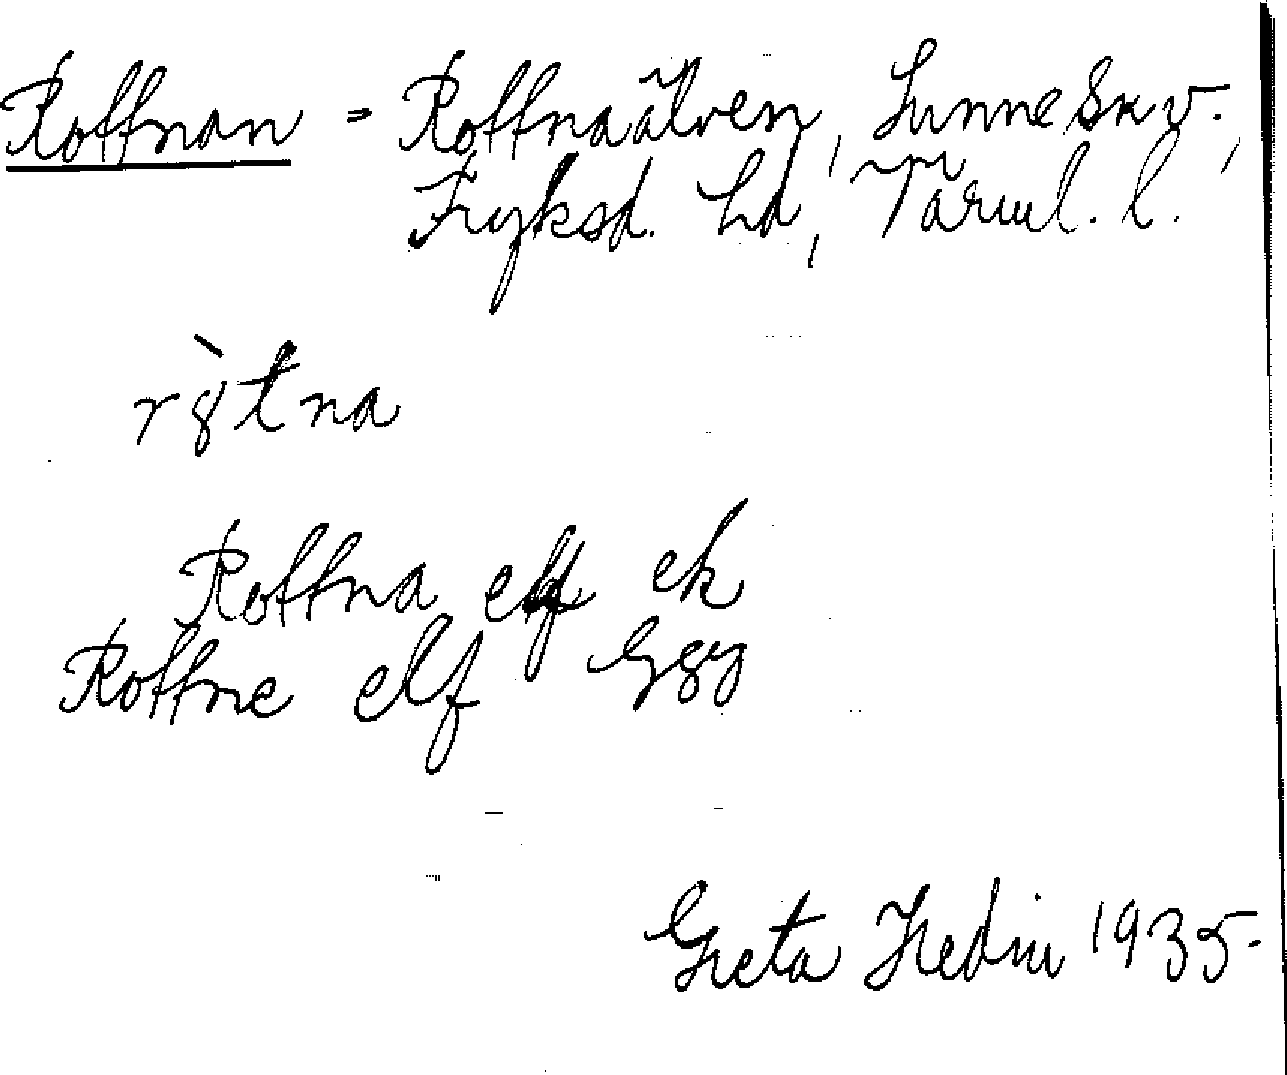 Rottnan = Rottnaälven, Sunne skv.,
Fryksd. hd, Värml. l.
r8̀tna
Rottna elf ek
Rottne elf Ggy
Greta Hedin 1935.